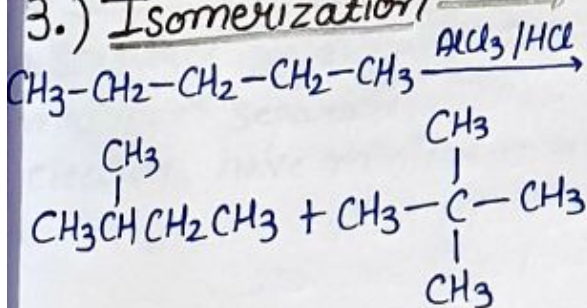 3.) Isomerization
CH3-CH2-CH2-CH2-CH3 AlCl3/HCl
CH3 CH3
CH3CHCH2CH3 + CH3-C-CH3
CH3